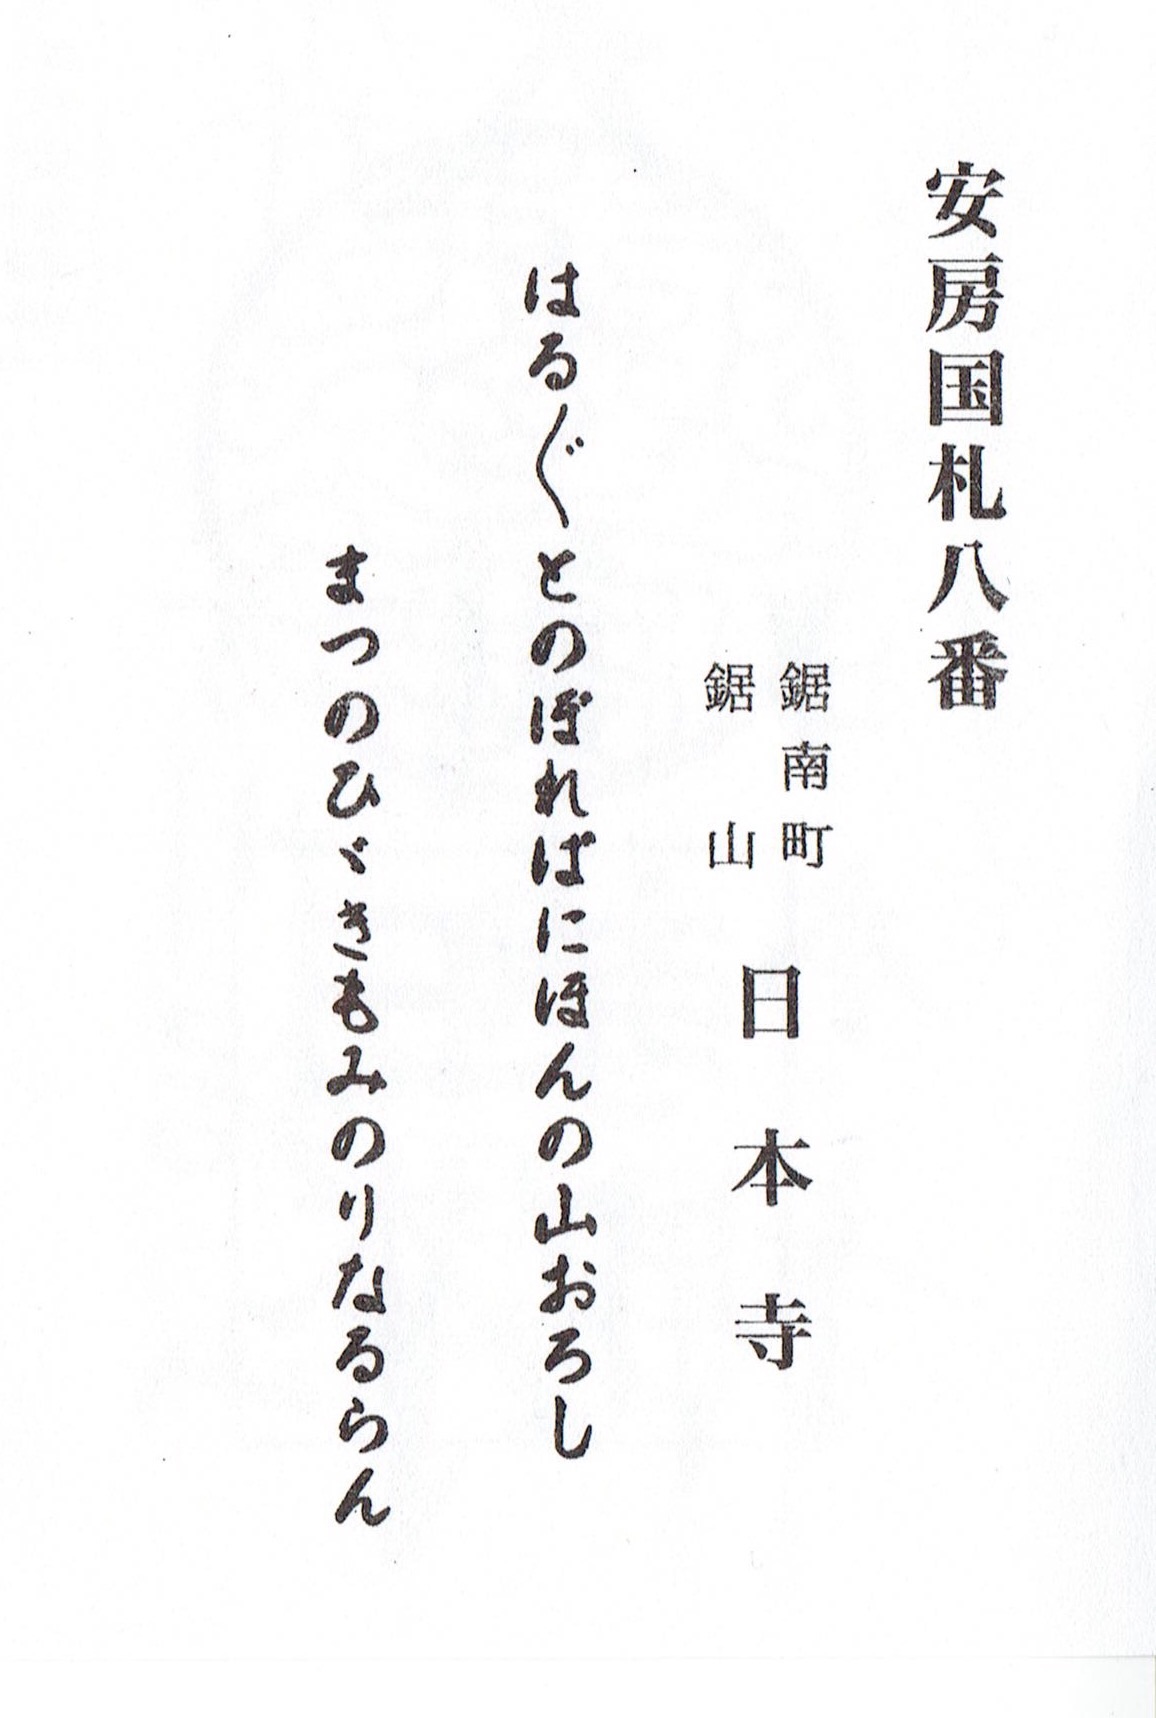 安房国札八番
鋸南町
鋸山
日本寺
はる〴〵とのぼればにほんの山おろし
まつのひゞきもみのりなるらん